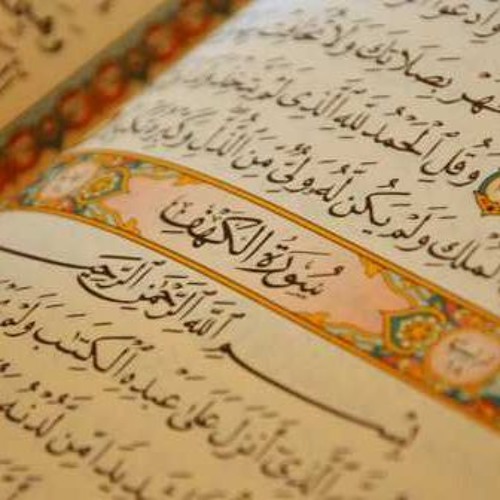 وادعوا ال
هر بصلاتك ولا تخافت
وقل الحمد لله الذي لم يتخذ ولدا
الملك ولم يكن له ولي من الذل وكبره
سورة الكهف
بسم الله الرحمن الرحيم
الذي أنزل على عبده الكتب ولم
شديدا من لدنه